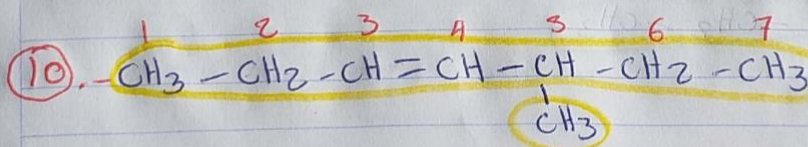 1 2 3 4 5 6 7
10.- CH3 - CH2 - CH = CH - CH - CH2 - CH3
|
CH3